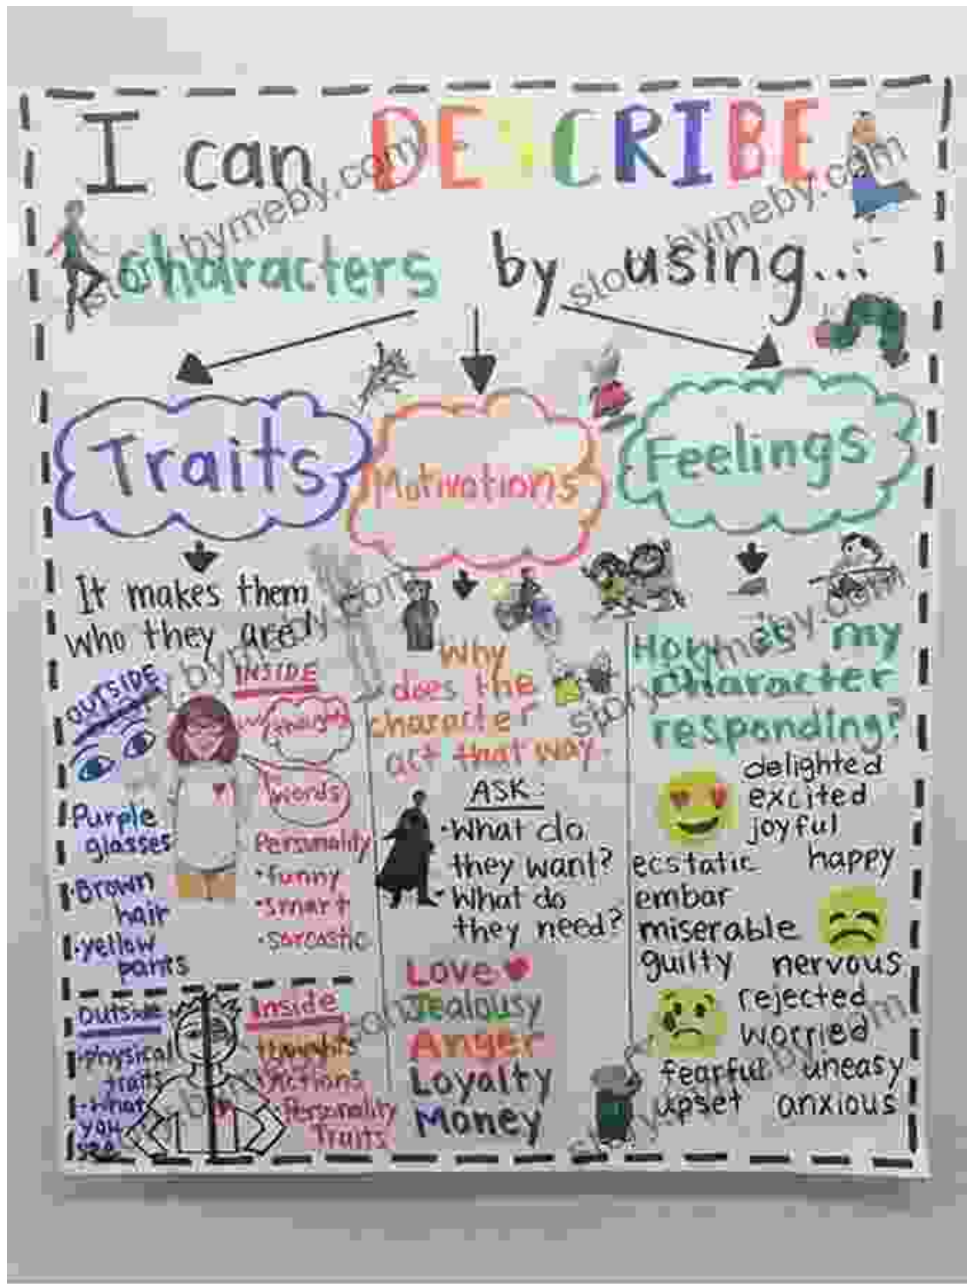 I can DESCRIBE
characters by using...
Traits
Motivations
Feelings
It makes them
who they are!
OUTSIDE
INSIDE
Thoughts
Words
Purple
glasses
•Brown
hair
•yellow
pants
Personality
•funny
•smart
•sarcastic
Outside
•physical
traits
•what
you
see
Inside
•thoughts
•Actions
•Personality
Traits
Why
does the
character
act that way.
ASK:
•What do
they want?
•What do
they need?
Love
Jealousy
Anger
Loyalty
Money
How is my
character
responding?
delighted
excited
joyful
ecstatic happy
embar
miserable
guilty nervous
rejected
worried
fearful uneasy
upset anxious
story.bymeby.com